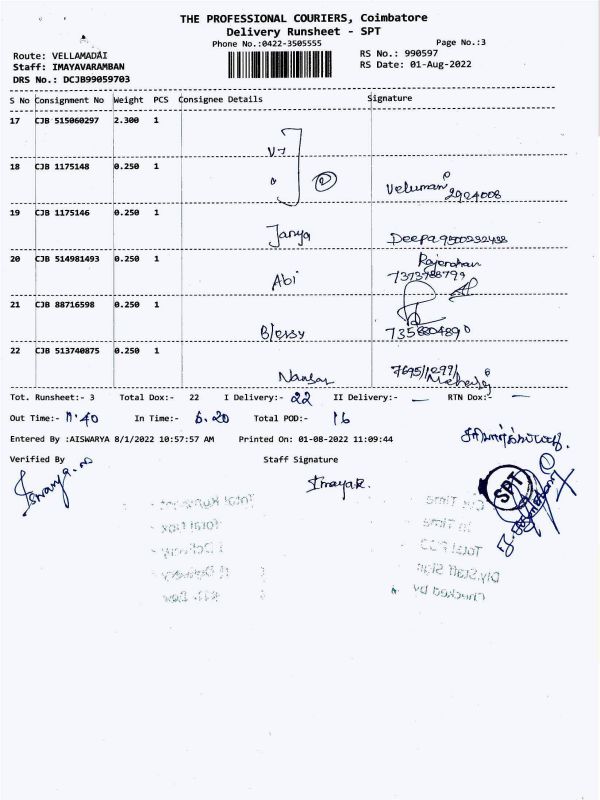 THE PROFESSIONAL COURIERS, Coimbatore
Delivery Runsheet - SPT
Phone No.:0422-3505555 Page No.:3
Route: VELLAMADAI RS No.: 990597
Staff: IMAYAVARAMBAN RS Date: 01-Aug-2022
DRS No.: DCJB99059703
S No Consignment No Weight PCS Consignee Details Signature
17 CJB 515060297 2.300 1
18 CJB 1175148 0.250 1
2 Veluman
2904008
19 CJB 1175146 0.250 1
Janya Deepa 9500232438
20 CJB 514981493 0.250 1
Abi 7373788799
21 CJB 88716598 0.250 1
Blessy 7358804890
22 CJB 513740875 0.250 1
Tot. Runsheet:- 3 Total Dox:- 22 I Delivery:- 22 II Delivery:- — RTN Dox:- —
Out Time:- 11.40 In Time:- 6.20 Total POD:- 16
Entered By :AISWARYA 8/1/2022 10:57:57 AM Printed On: 01-08-2022 11:09:44
Verified By Staff Signature
Imayak.
SPT
Total Runsheet Out Time
Total Dox In Time
I Delivery Total POD
II Delivery Dly.Staff Sign
Checked by